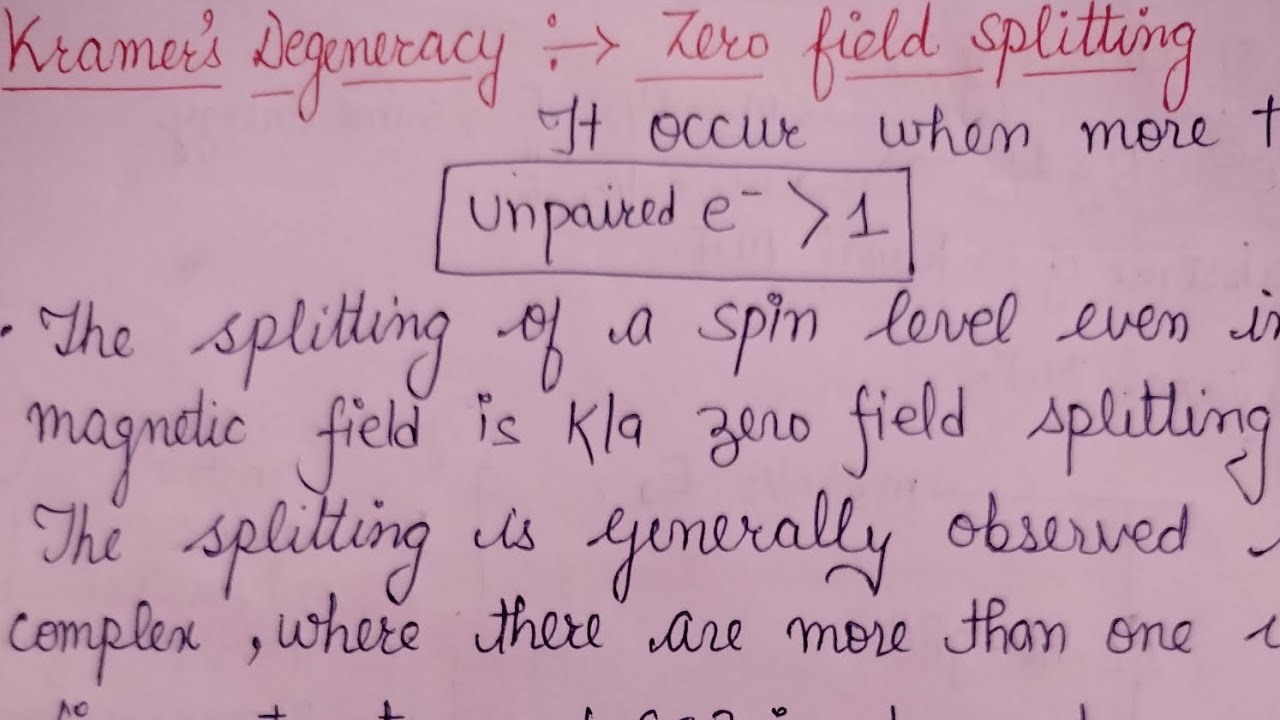 Kramer's Degeneracy ÷→ Zero field splitting
It occur when more
unpaired e⁻ > 1
. The splitting of a spin level even in
magnetic field is K/a zero field splitting
The splitting is generally observed
complex, where there are more than one